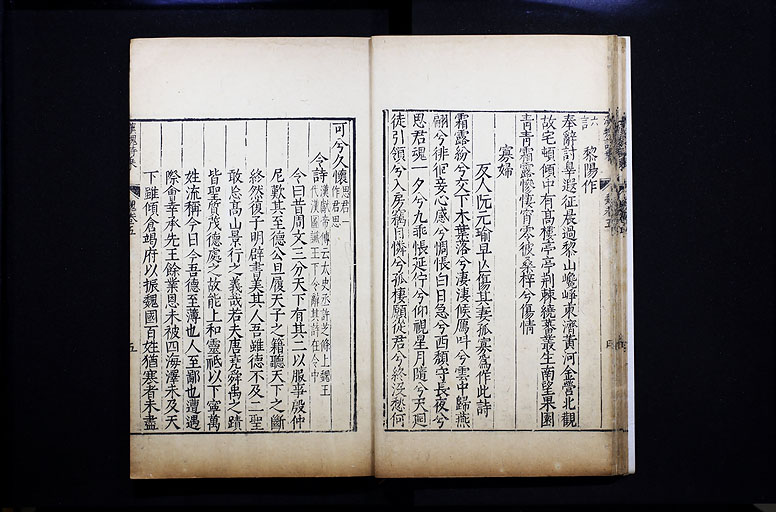 六言
黎陽作
奉辭討辠遐征晨過黎山巉崢東濟黃河金營北觀
故宅頓傾中有高樓亭亭荆棘繞蕃叢生南望果園
青青霜露慘悽宵零彼桑梓兮傷情
寡婦
友人阮元瑜早亡傷其妻孤寡爲作此詩
霜露紛兮交下木葉落兮淒淒候鴈叫兮雲中歸燕
翩兮徘徊妾心感兮惆悵白日急兮西頹守長夜兮
思君魂一夕兮九乖悵延佇兮仰視星月隨兮天迴
徒引領兮入房竊自憐兮孤棲願從君兮終沒愁何
可兮久懷
思君作君思
令詩
漢獻帝傳云太史丞許芝條上魏王
代漢圖讖王下令辭其詩在令中
令曰昔周文三分天下有其二以服事殷仲
尼歎其至德公旦履天子之籍聽天下之斷
終然復子明辟書美其人吾雖德不及二聖
敢忘高山景行之義哉若夫唐堯舜禹之蹟
皆聖質茂德處之故能上和靈祗以下寧萬
姓流稱今日今吾德至薄也人至鄙也遭遇
際會幸承先王餘業恩未被四海澤未及天
下雖傾倉竭府以振魏國百姓猶寒者未盡
魏卷五
五